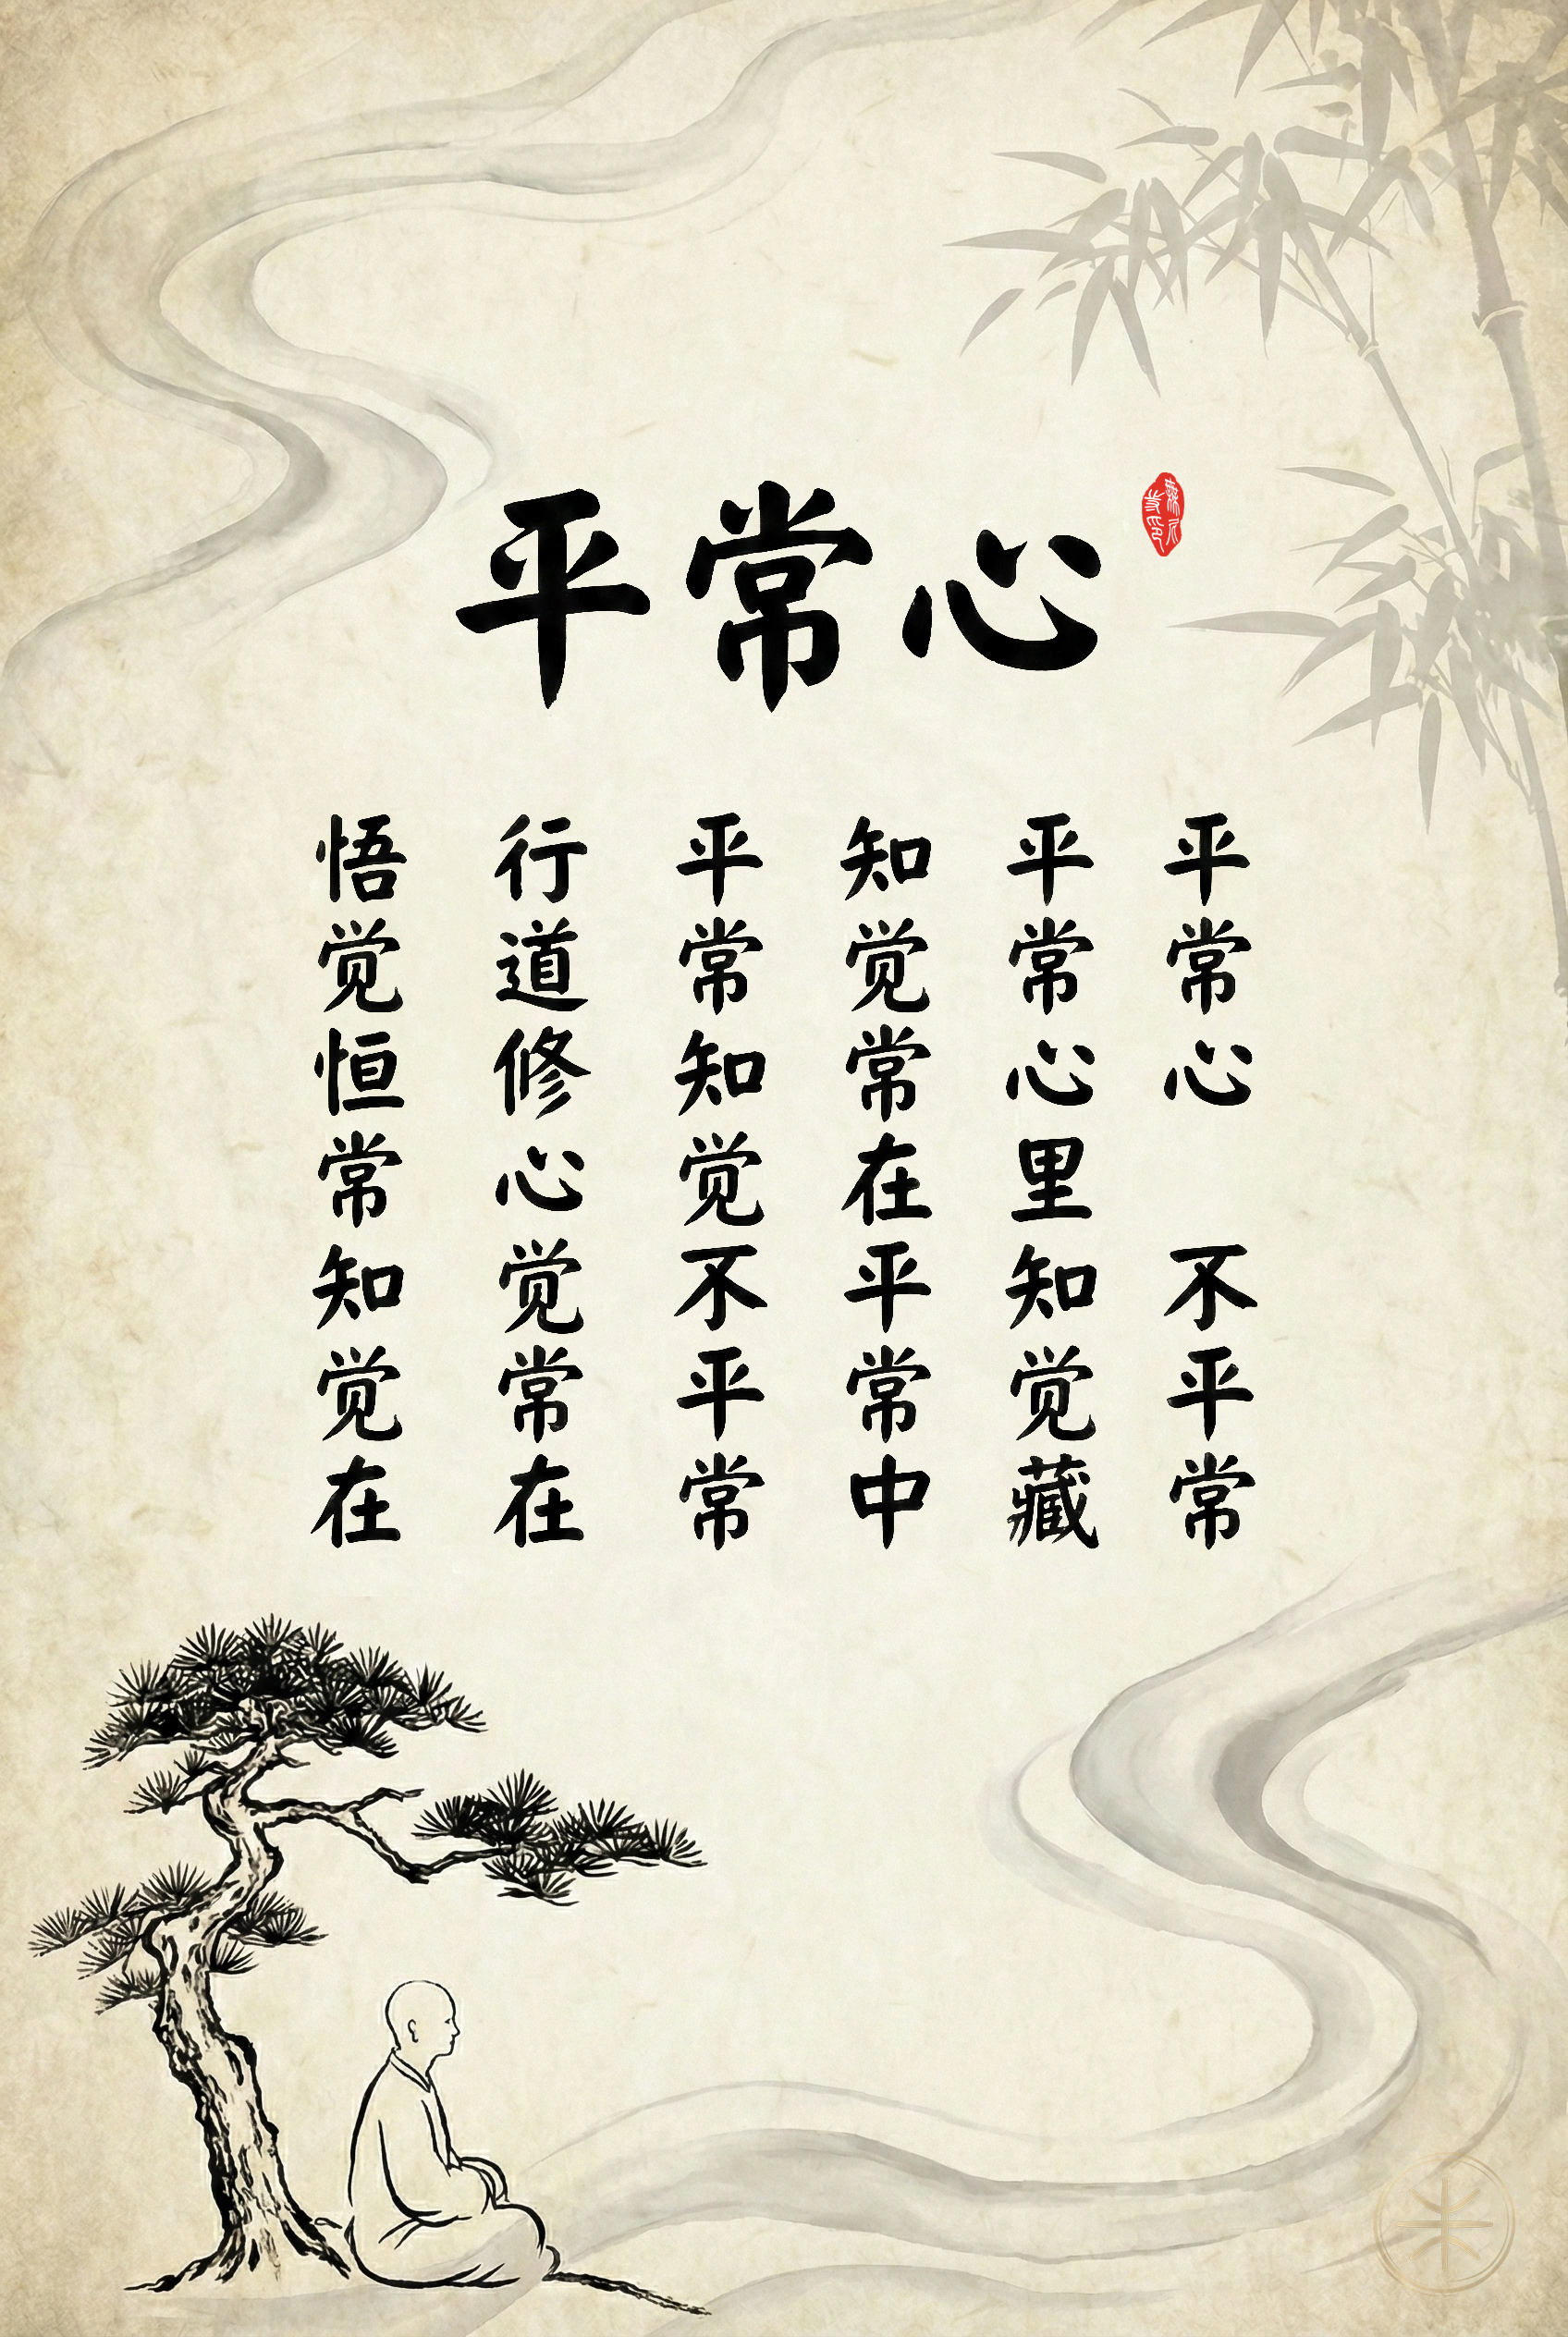 平常心
平常心 不平常
平常心里知觉藏
知觉常在平常中
平常知觉不平常
行道修心觉常在
悟觉恒常知觉在